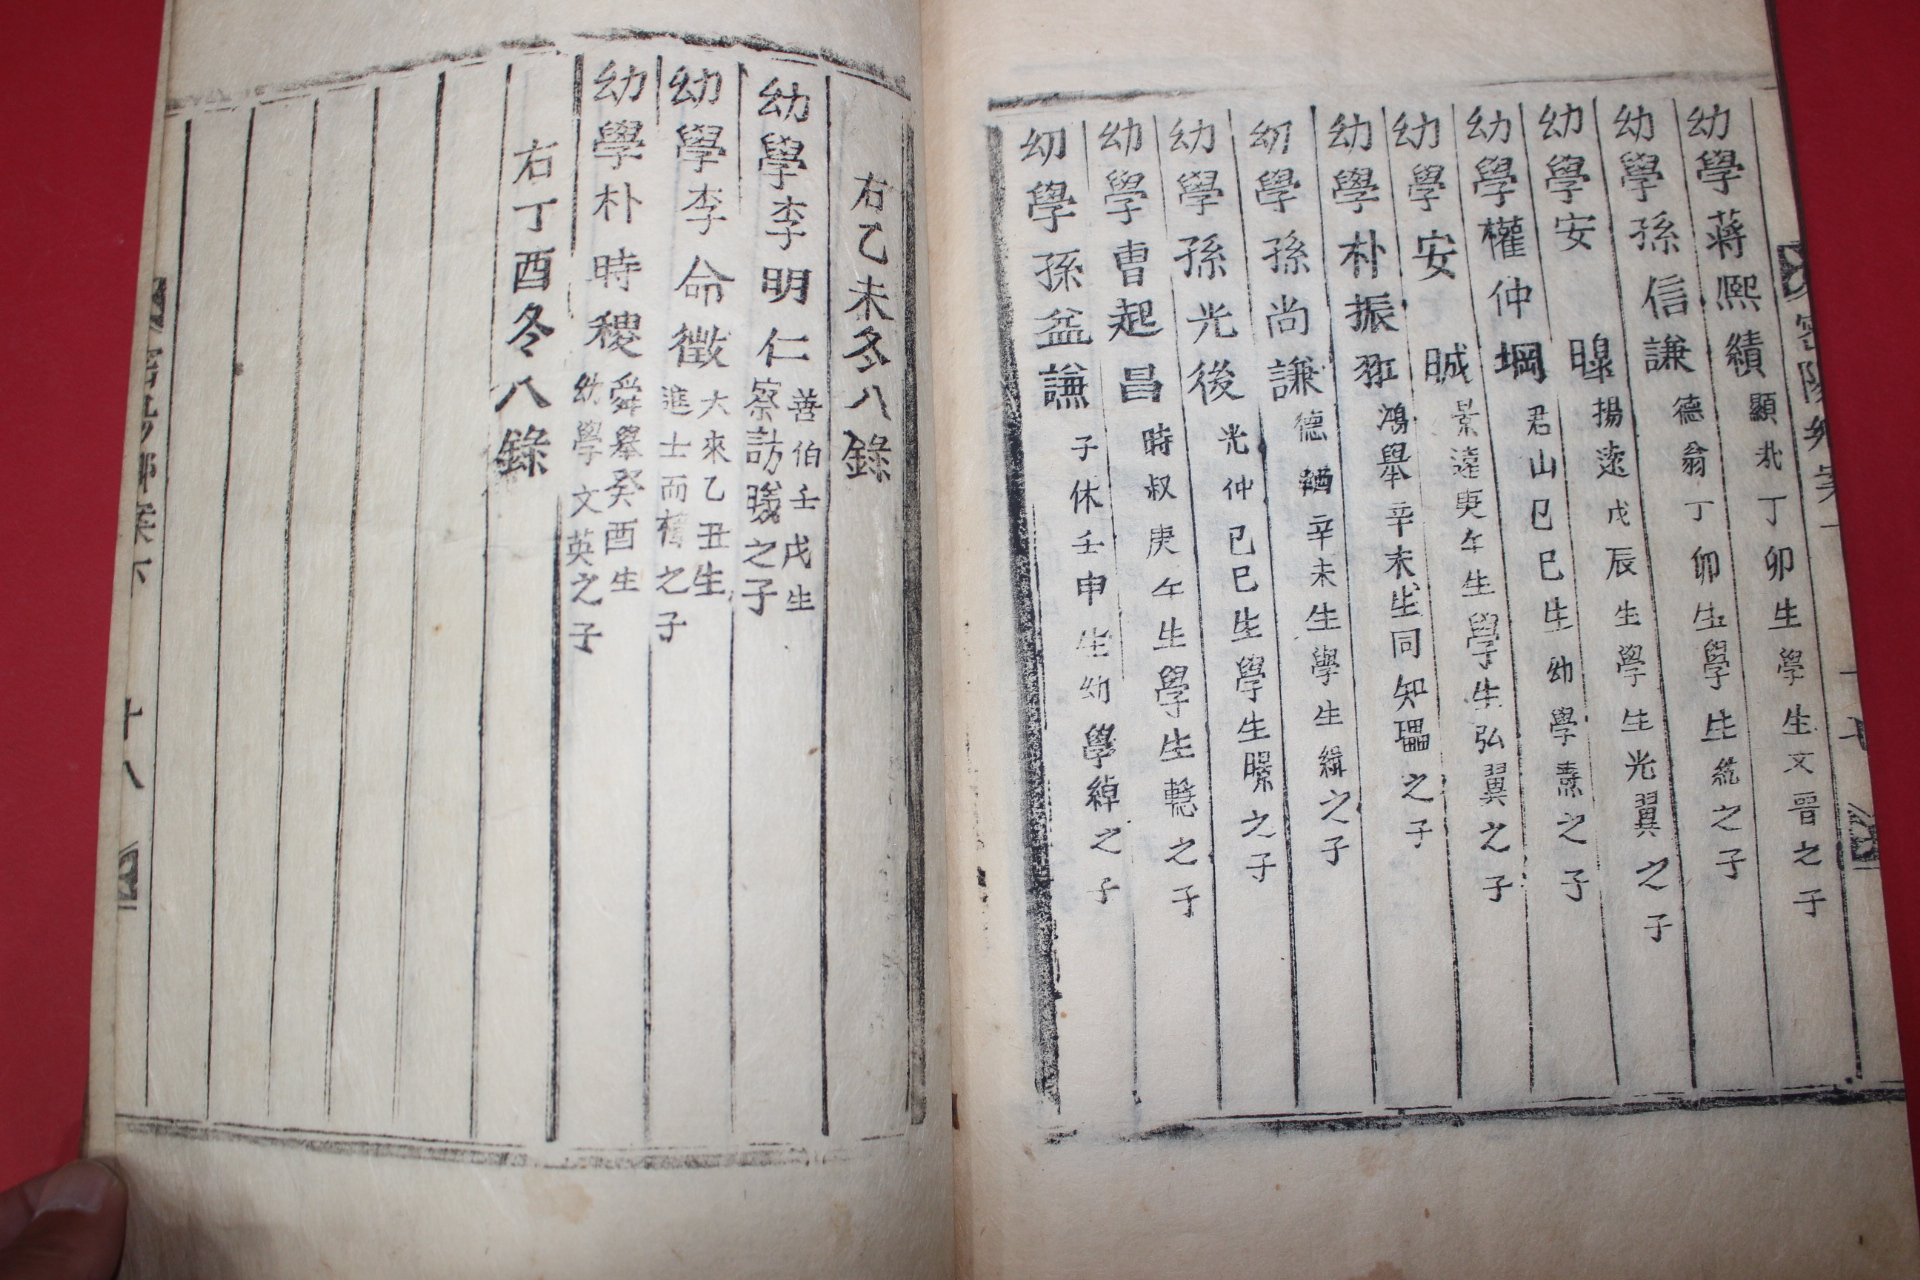 幼學蔣熙績顯哉丁卯生學生文晉之子
幼學孫信謙德翁丁卯生學生統之子
幼學安 㬎揚遠戊辰生學生光翼之子
幼學權仲堈君山巳巳生幼學熹之子
幼學安 晠景遠庚午生學生弘翼之子
幼學朴振羾鴻舉辛未生同知瑥之子
幼學孫尚謙德 辛未生學生緝之子
幼學孫光後光仲己巳生學生 之子
幼學曹起昌時叔庚午生學生 之子
幼學孫益謙子休壬申生幼學綽之子
十七
右乙未冬八錄
幼學李明仁善伯壬戌生
察訪 之子
幼學李命徵大來乙丑生
進士而 之子
幼學朴時稷舜舉癸酉生
幼學文英之子
右丁酉冬八錄
十八